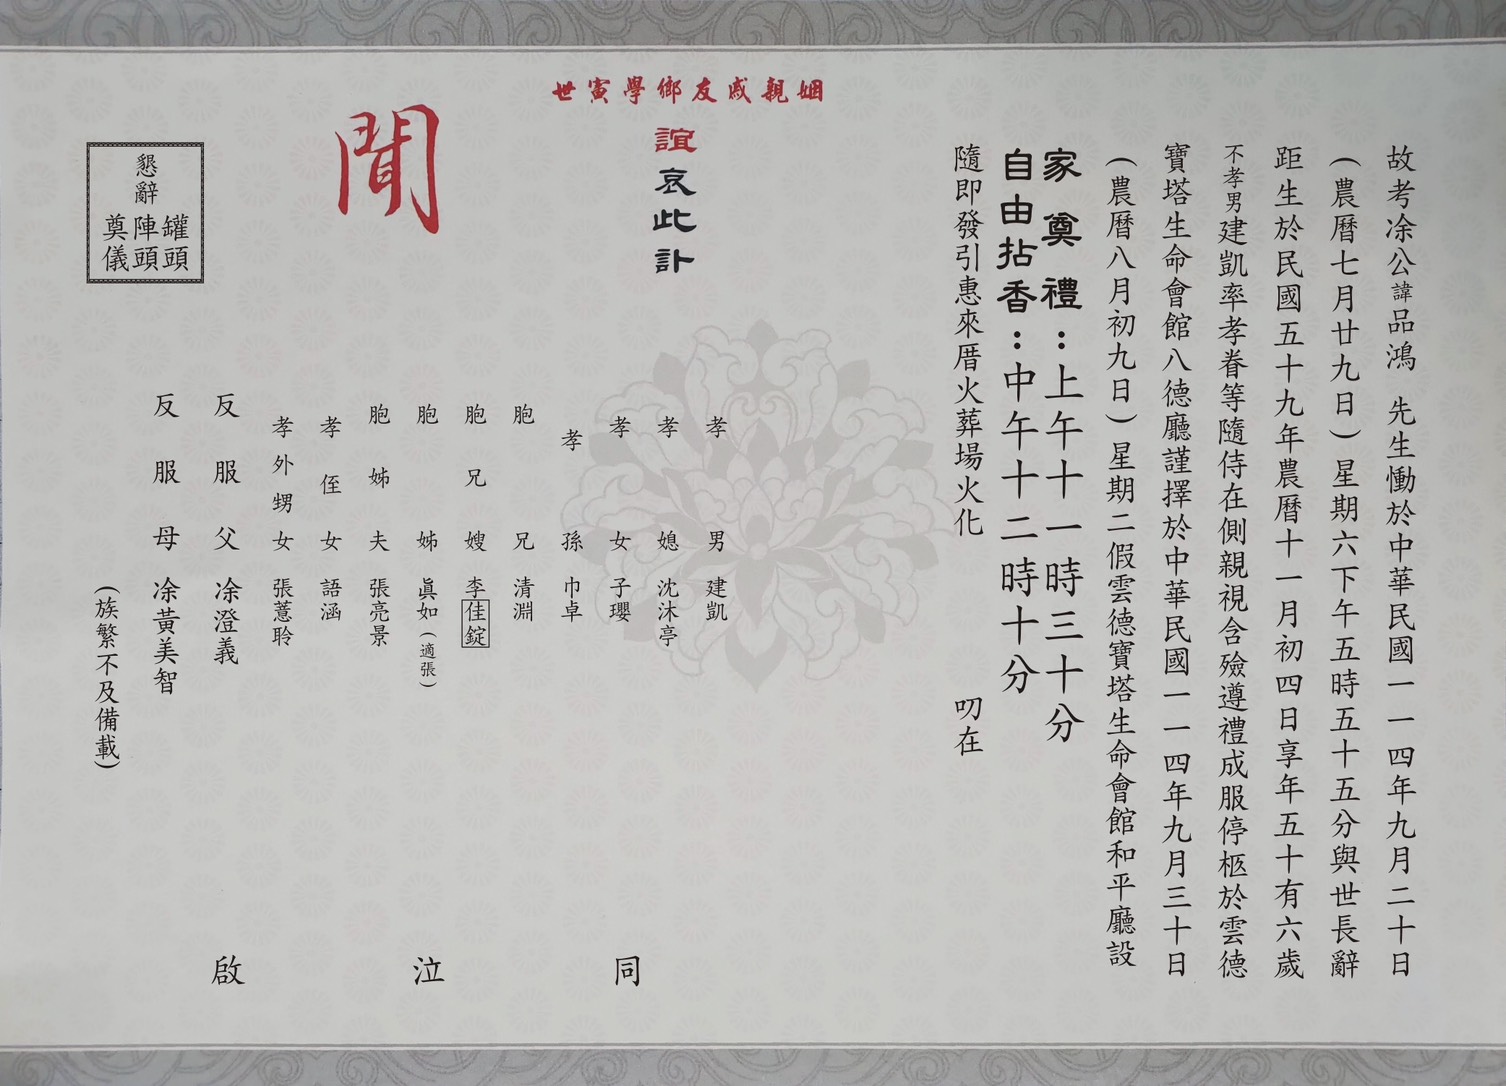 故考凃公諱品鴻　先生慟於中華民國一一四年九月二十日
（農曆七月廿九日）星期六下午五時五十五分與世長辭
距生於民國五十九年農曆十一月初四日享年五十有六歲
不孝男建凱率孝眷等隨侍在側親視含殮遵禮成服停柩於雲德
寶塔生命會館八德廳謹擇於中華民國一一四年九月三十日
（農曆八月初九日）星期二假雲德寶塔生命會館和平廳設
家奠禮：上午十一時三十分
自由拈香：中午十二時十分
隨即發引惠來厝火葬場火化　叨在
姻親戚友鄉學寅世
誼哀此訃
聞
孝男　建凱
孝媳　沈沐亭
孝女　子瓔
孝孫　巾卓
胞兄　清淵
胞兄嫂　李佳錠
胞姊　眞如（適張）
胞姊夫　張亮景
孝侄女　語涵
孝外甥女　張薏聆
反服父　凃澄義
反服母　凃黃美智
（族繁不及備載）
同泣啟
懇辭
罐頭
陣頭
奠儀